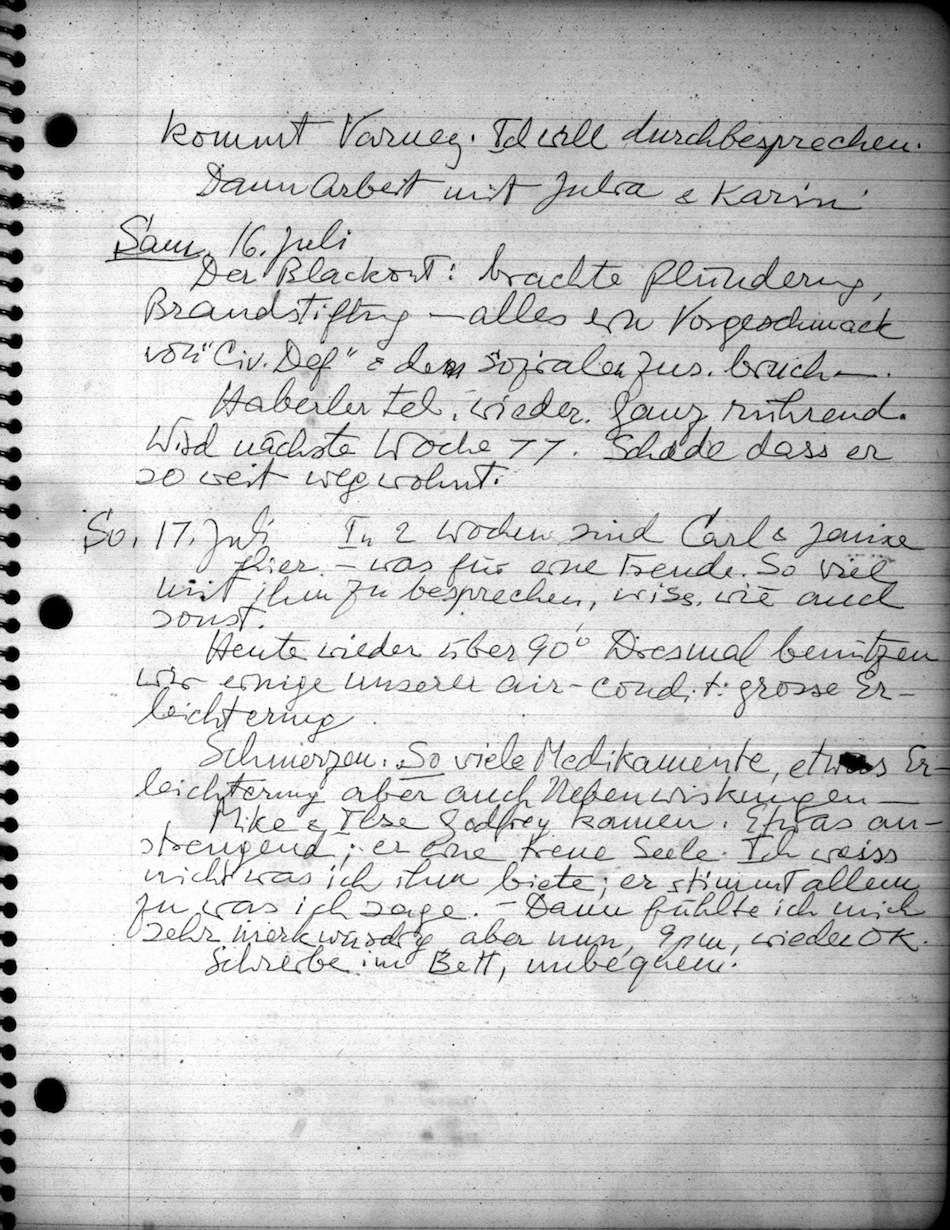 kommt Varney. Ich will durchbesprechen.
Dann Arbeit mit Julia & Karin
Sam. 16. Juli
Der Blackout: brachte Plünderung,
Brandstiftng – alles ein Vorgeschmack
von "Civ. Def" & dem sozialen Zus. bruch –.
Haberler tel. wieder. Ganz rührend.
Wird nächste Woche 77. Schade dass er
so weit weg wohnt.
So. 17. Juli In 2 Wochen sind Carl & Janixe
hier – was für eine Freude. So viel
mit ihm zu besprechen, wiss. wie auch
sonst.
Heute wieder über 90° Diesmal benützen
wir einige unserer air-condit. grosse Er-
leichterung
Schmerzen. So viele Medikamente, etwas Er-
leichterung aber auch Nebenwirkungen –
Mike & Ilse Godfrey kamen. Etwas an-
strengend; er eine treue Seele. Ich weiss
nicht was ich ihm biete; er stimmt allem
zu was ich sage. – Dann fühlte ich mich
sehr merkwürdig, aber nun, 9pm, wieder OK.
Schreibe im Bett, unbequem.